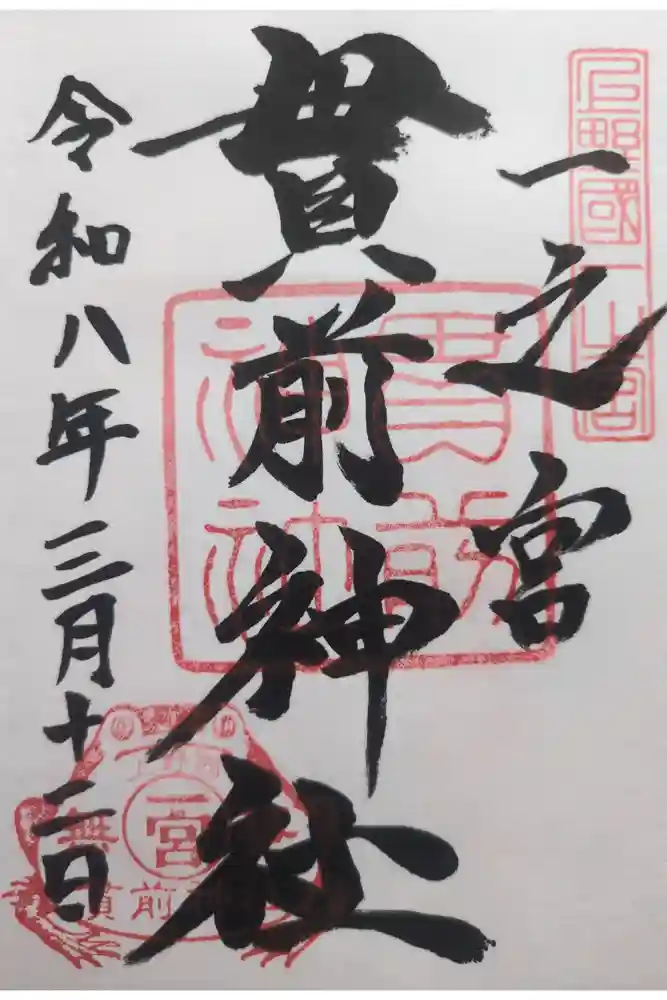 上野國一之宮
一之宮
貫前神社
貫前神社
令和八年三月十二日
一宮
無
貫前